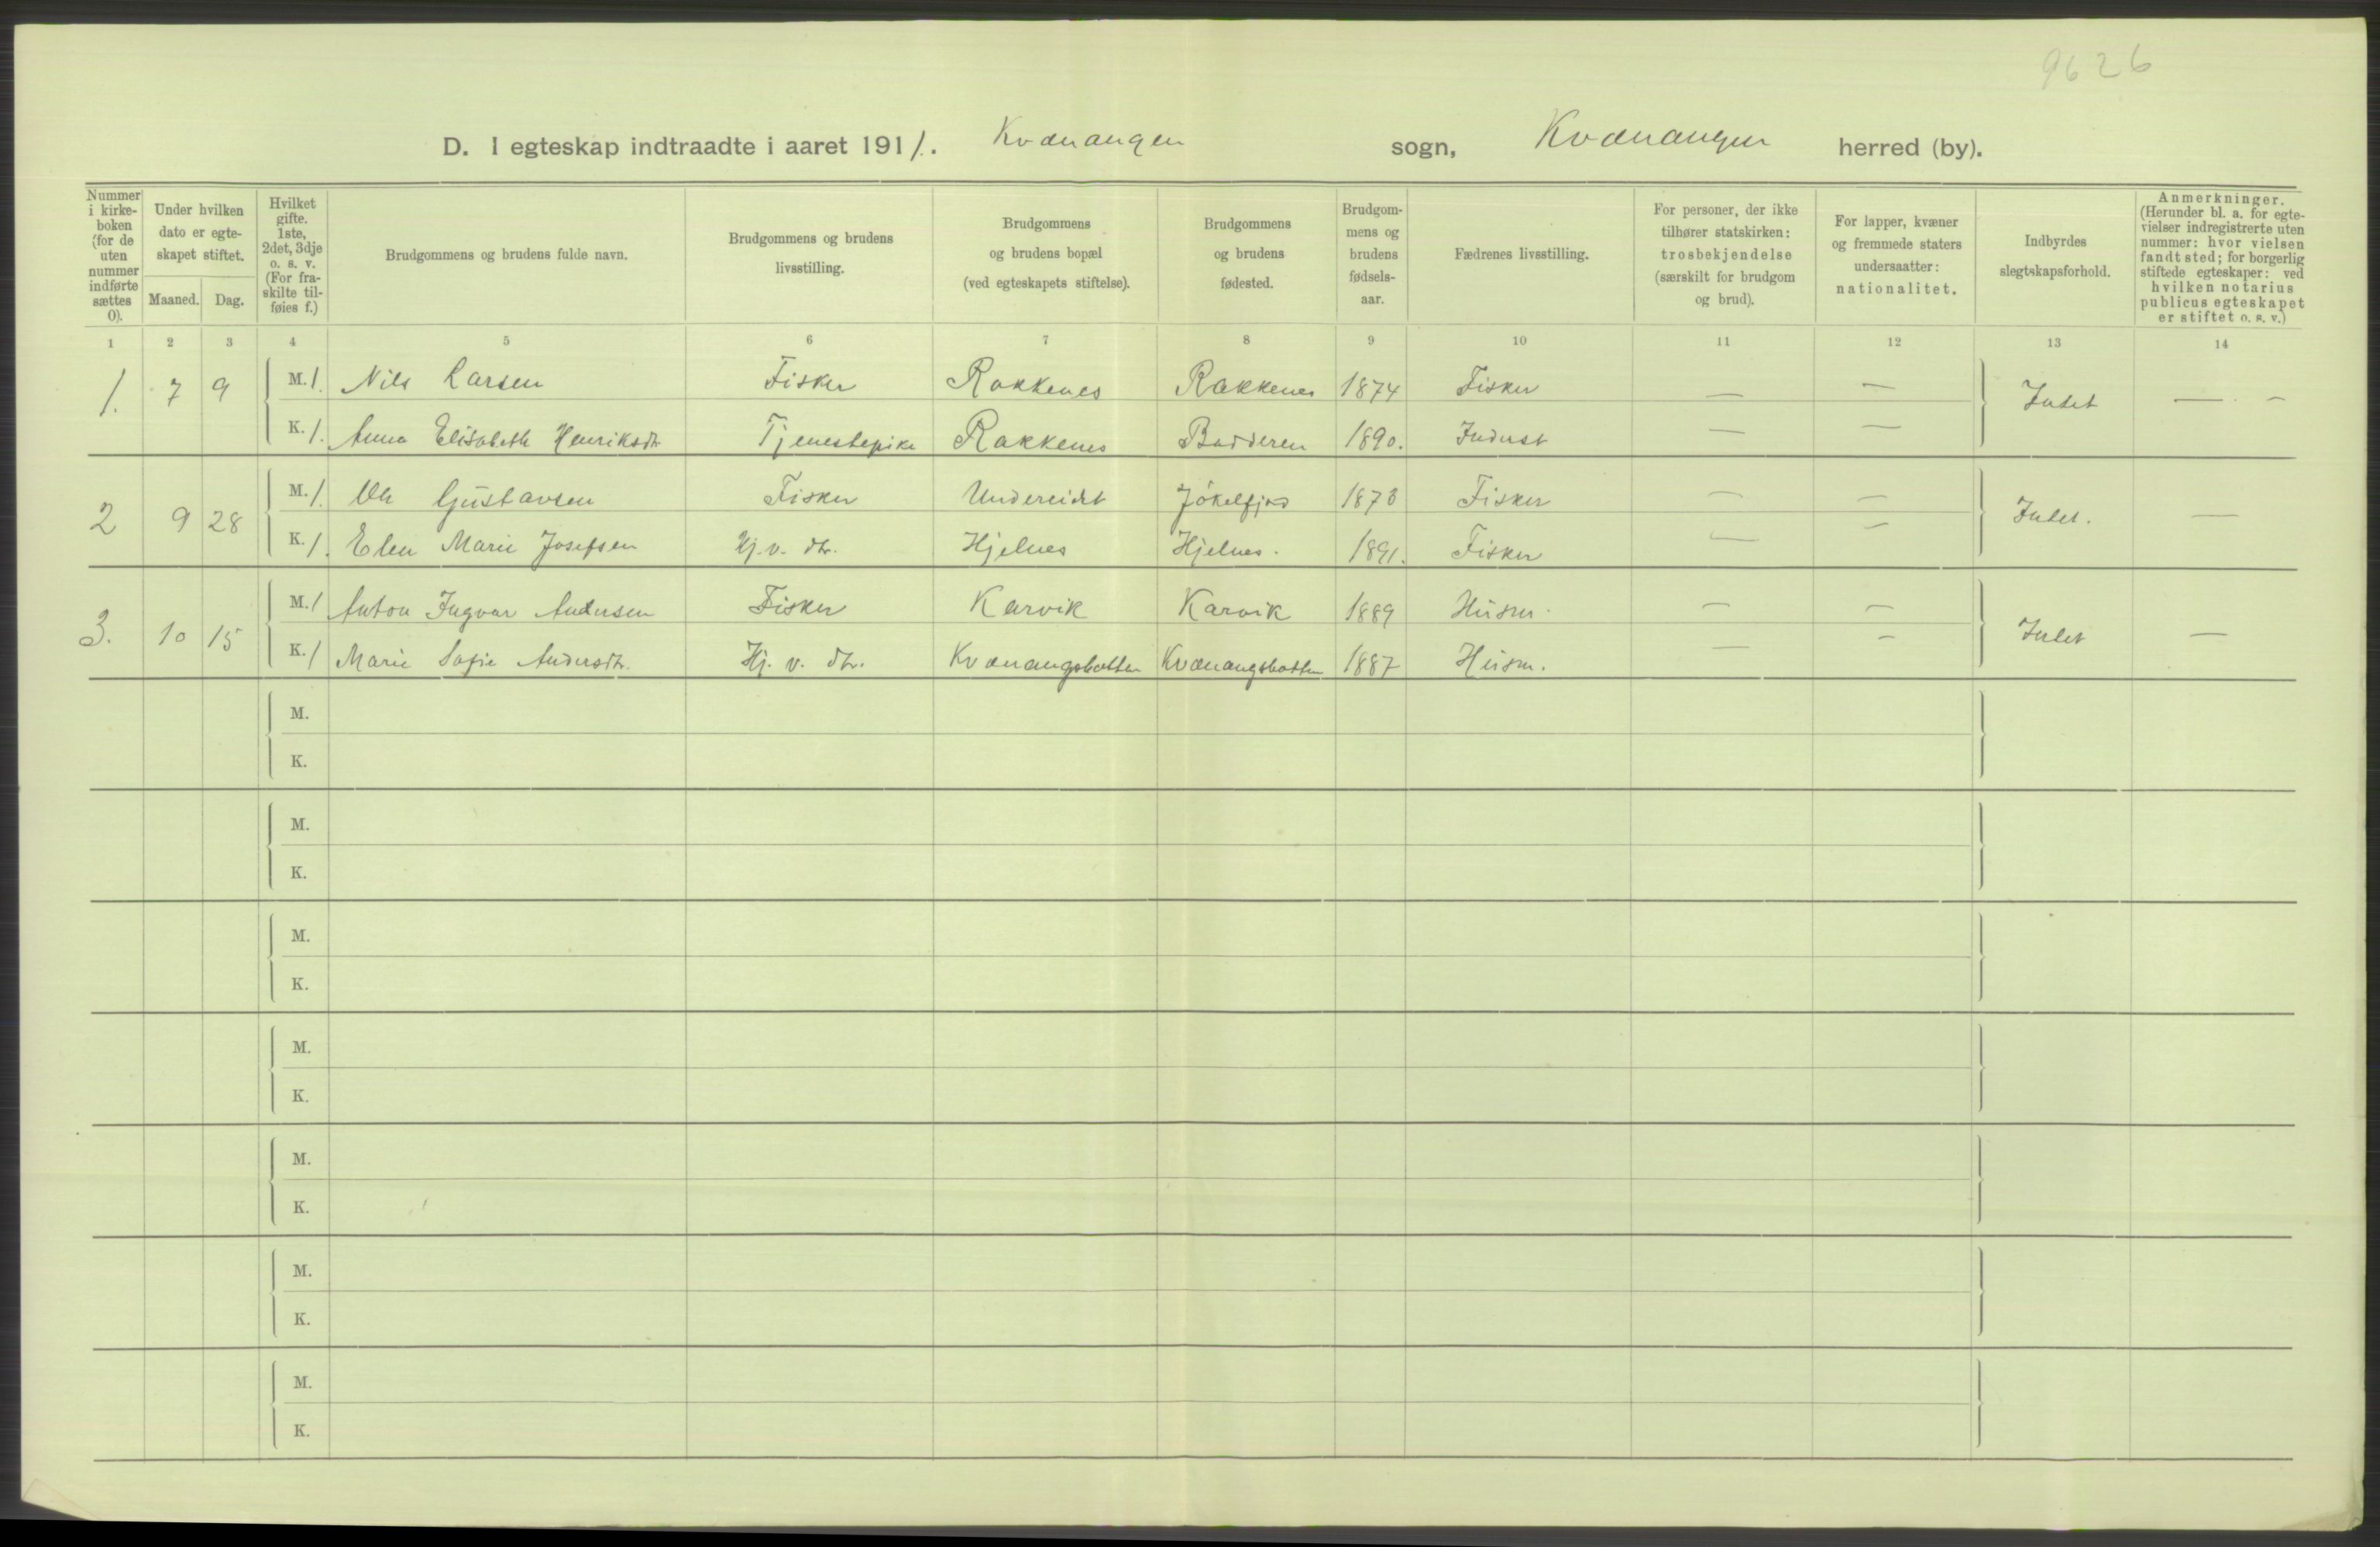 9626
D. I egteskap indtraadte i aaret 1911. Kvænangen sogn, Kvænangen herred (by).
Nummer i kirke-boken (for de uten nummer indførte sættes 0).
Under hvilken dato er egte-skapet stiftet.
Maaned. Dag.
Hvilket gifte. 1ste, 2det, 3dje o. s. v. (For fra-skilte til-føies f.)
Brudgommens og brudens fulde navn.
Brudgommens og brudens livsstilling.
Brudgommens og brudens bopæl (ved egteskapets stiftelse).
Brudgommens og brudens fødested.
Brudgom-mens og brudens fødsels-aar.
Fædrenes livsstilling.
For personer, der ikke tilhører statskirken: trosbekjendelse (særskilt for brudgom og brud).
For lapper, kvæner og fremmede staters undersaatter: nationalitet.
Indbyrdes slegtskapsforhold.
Anmerkninger. (Herunder bl. a. for egte-vielser indregistrerte uten nummer: hvor vielsen fandt sted; for borgerlig stiftede egteskaper: ved hvilken notarius publicus egteskapet er stiftet o. s. v.)
1 2 3 4 5 6 7 8 9 10 11 12 13 14
1. 7 9 M. 1. Nils Larsen Fisker Rakkenes Rakkenes 1874 Fisker — — Intet — —
K. 1. Anna Elisabeth Henriksdtr Tjenestepike Rakkenes Badderen 1890. Inderst — —
2 9 28 M. 1. Ole Gustavsen Fisker Undereidet Jökelfjord 1873 Fisker — — Intet. —
K. 1. Elen Marie Josefsen Hj. v. dtr. Hjelnes Hjelnes. 1891. Fisker — —
3. 10 15 M. 1 Anton Ingvar Andersen Fisker Karvik Karvik 1889 Husm. — — Intet —
K. 1 Marie Sofie Andersdtr. Hj. v. dtr. Kvænangsbotten Kvænangsbotten 1887 Husm. — —
M.
K.
M.
K.
M.
K.
M.
K.
M.
K.
M.
K.
M.
K.